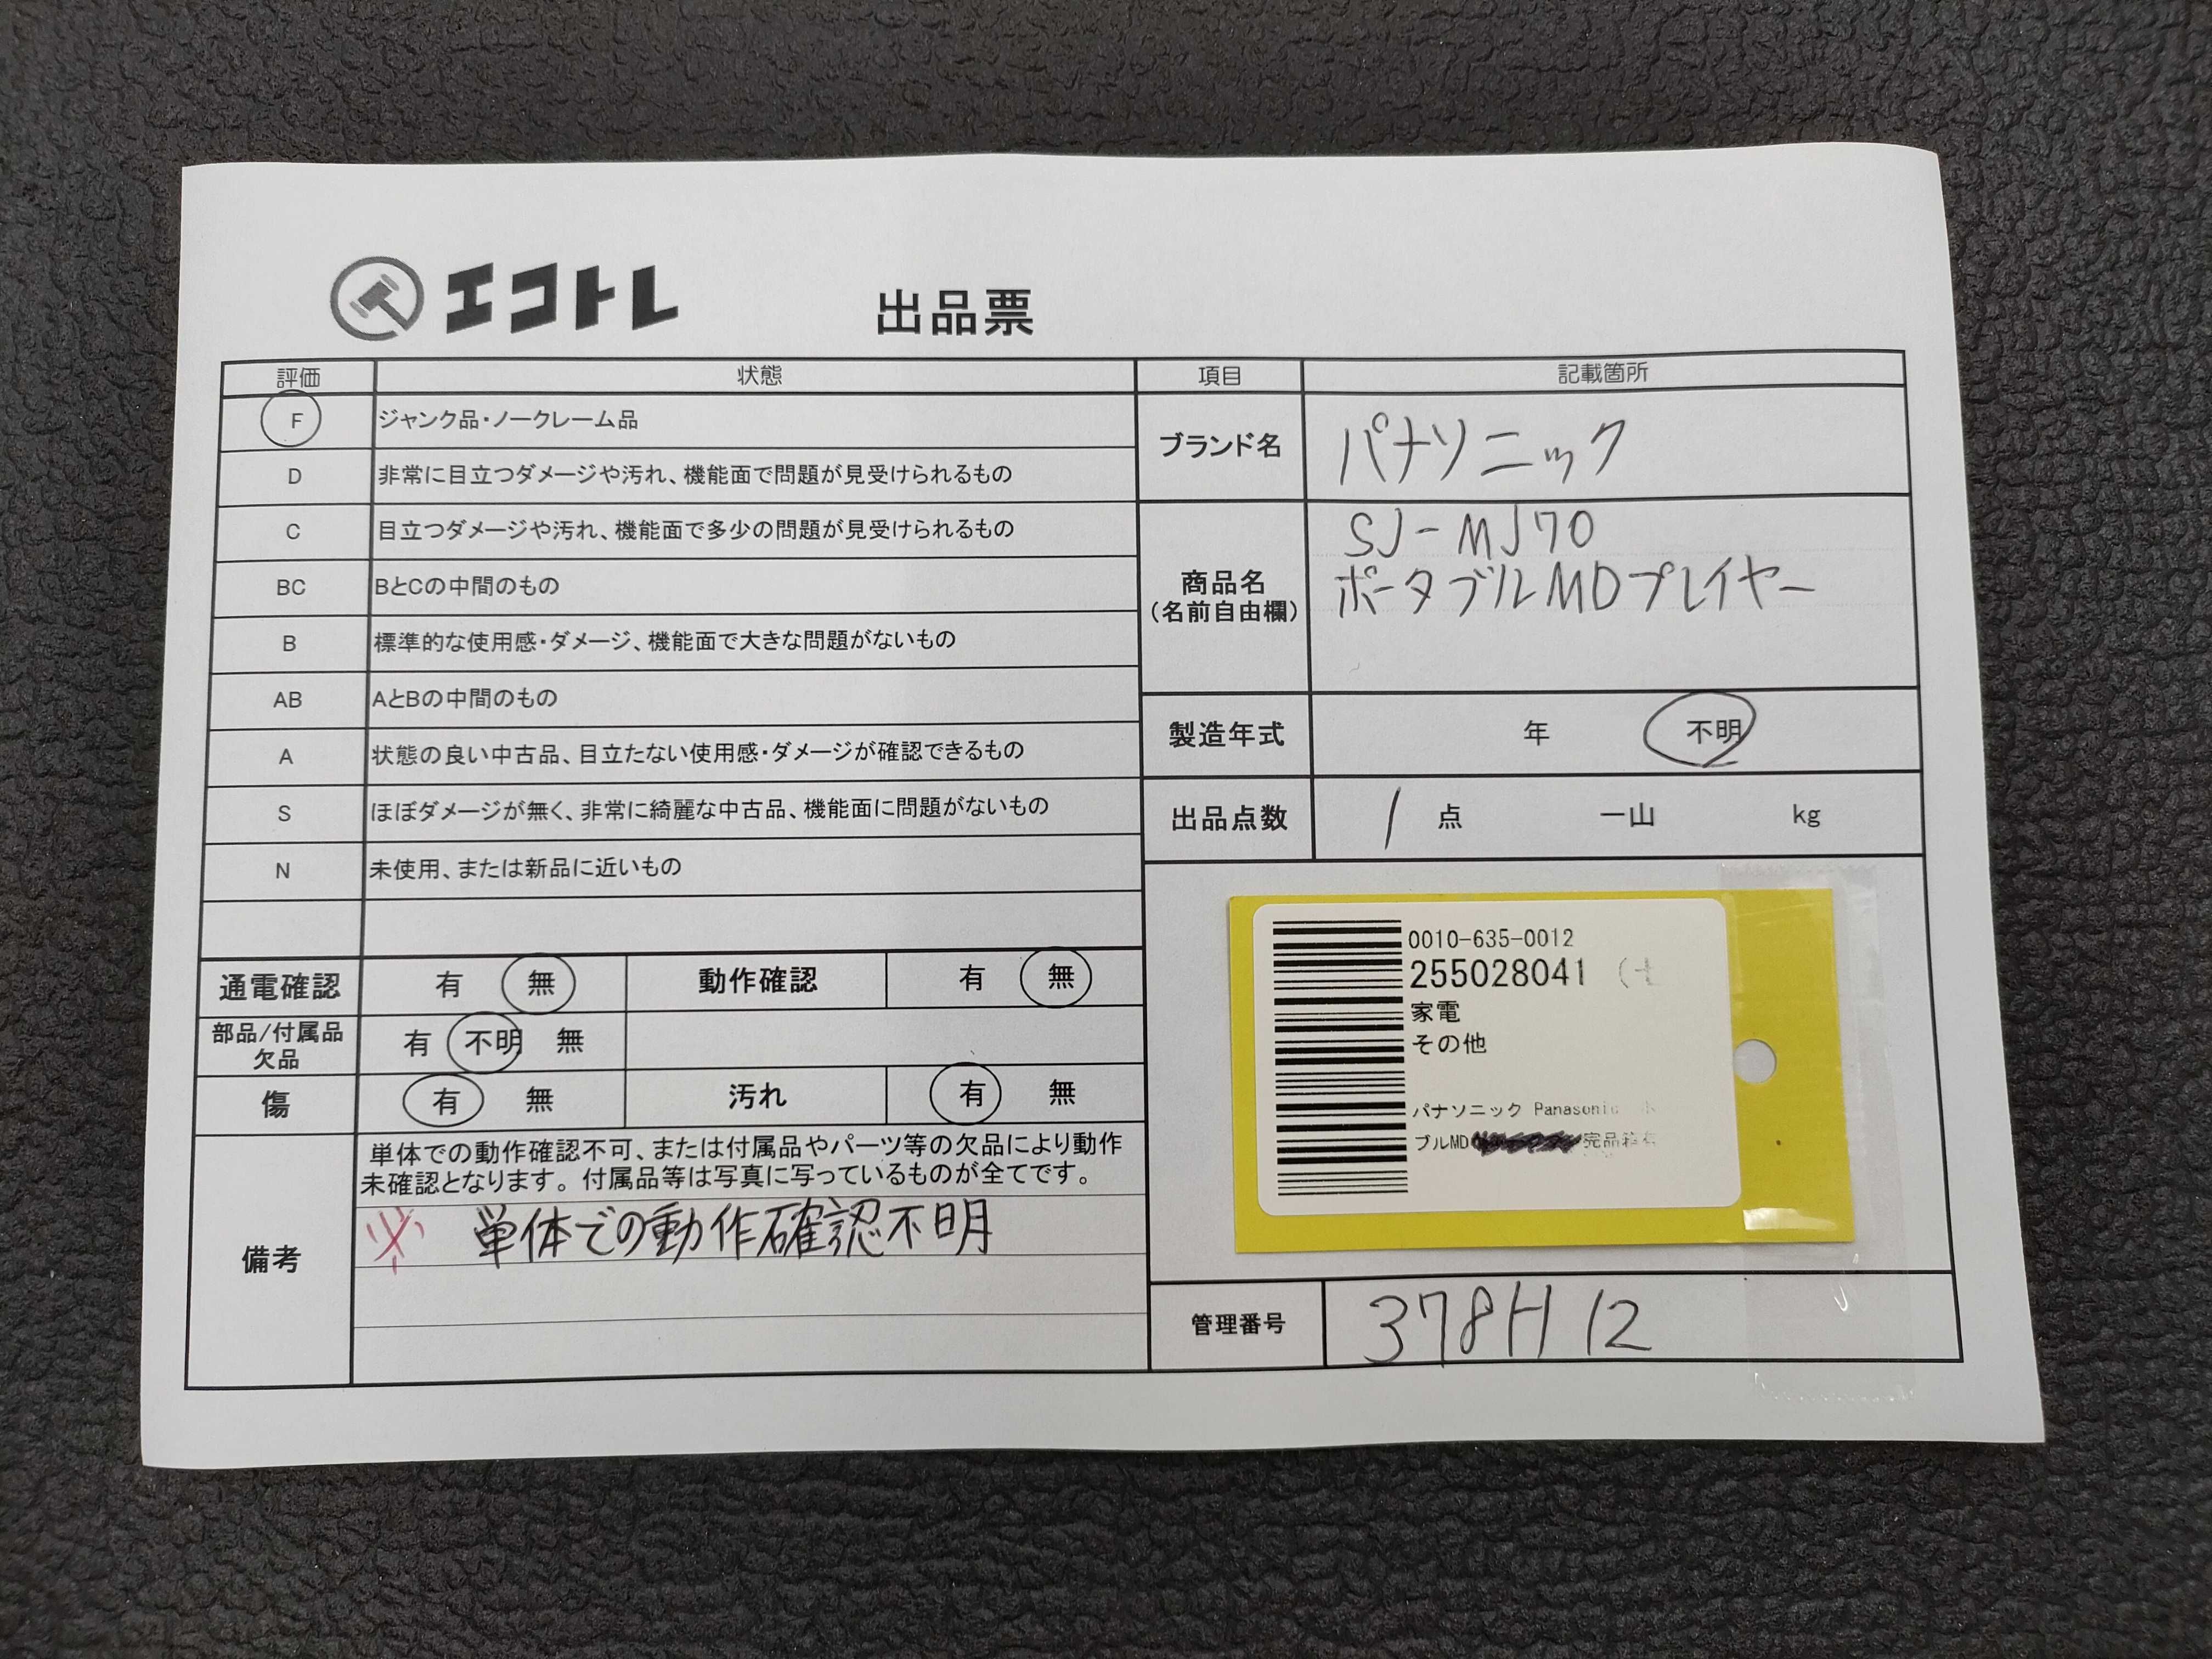 エコトレ 出品票
評価 状態
F ジャンク品・ノークレーム品
D 非常に目立つダメージや汚れ、機能面で問題が見受けられるもの
C 目立つダメージや汚れ、機能面で多少の問題が見受けられるもの
BC BとCの中間のもの
B 標準的な使用感・ダメージ、機能面で大きな問題がないもの
AB AとBの中間のもの
A 状態の良い中古品、目立たない使用感・ダメージが確認できるもの
S ほぼダメージが無く、非常に綺麗な中古品、機能面に問題がないもの
N 未使用、または新品に近いもの
通電確認 有 無 動作確認 有 無
部品/付属品
欠品
有 不明 無
傷 有 無 汚れ 有 無
備考
単体での動作確認不可、または付属品やパーツ等の欠品により動作
未確認となります。付属品等は写真に写っているものが全てです。
※ 単体での動作確認不明
項目 記載箇所
ブランド名 パナソニック
商品名
(名前自由欄)
SJ-MJ70
ポータブルMDプレイヤー
製造年式 年 不明
出品点数 1 点 一山 kg
0010-635-0012
255028041
家電
その他
パナソニック Panasonic
ブルMD 完品箱有
管理番号 378H12